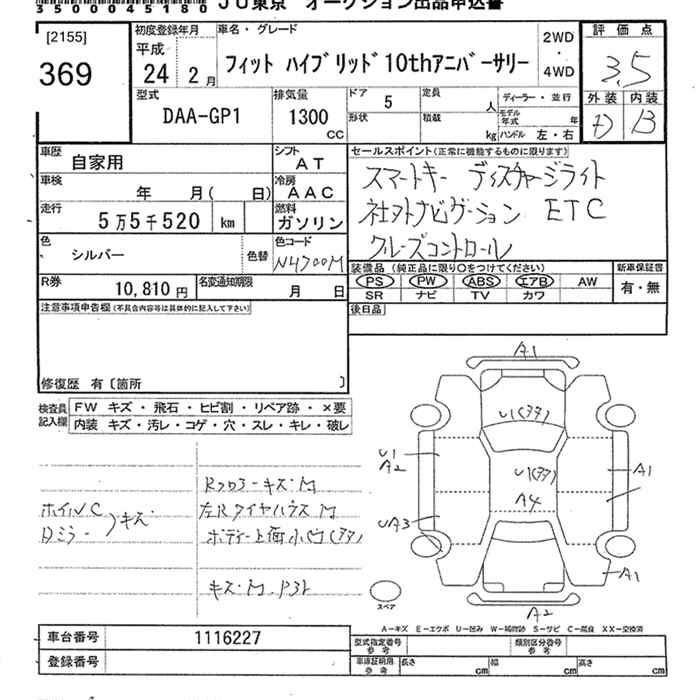 35000045180 JU東京 オークション出品申込書
[2155]
369
初度登録年月
平成
24 2月
車名・グレード
フィット ハイブリッド10thアニバーサリー
2WD
・
4WD
評価点
3.5
外装 内装
D B
型式
DAA-GP1
排気量
1300
CC
ドア
5
形状
定員
人
積載
kg
ディーラー・並行
モデル年式 年
ハンドル 左・右
車歴
自家用
シフト
AT
車検
年 月( 日)
冷房
AAC
走行
5万5千520 km
燃料
ガソリン
色
シルバー
色替
色コード
NH700M
R券
10,810円
名変通知期限
月 日
セールスポイント(正常に機能するものに限ります)
スマートキー ディスチャージライト
社外ナビゲーション ETC
クルーズコントロール
装備品 (純正品に限り○をつけてください)
PS PW ABS エアB AW
SR ナビ TV カワ
新車保証書
有・無
後日品
注意事項申告欄(不具合内容等は具体的に記入して下さい)
修復歴 有〔箇所 〕
検査員記入欄
FW キズ・飛石・ヒビ割・リペア跡・×要
内装 キズ・汚レ・コゲ・穴・スレ・キレ・破レ
Rフロアーキズ・M
ホイルC
Dミラー
キズ
左Rタイヤハウス M
ボディー上面小凹(多)
A1
U1(多)
U1
A2
U1(多)
A4
A1
UA3
A1
A2
スペア
A-キズ E-エクボ U-凹み W-補修跡 S-サビ C-腐食 XX-交換済
車台番号 1116227
登録番号
型式指定番号
参考
類別区分番号
参考
車庫証明用
参考
長さ cm 幅 cm 高さ cm